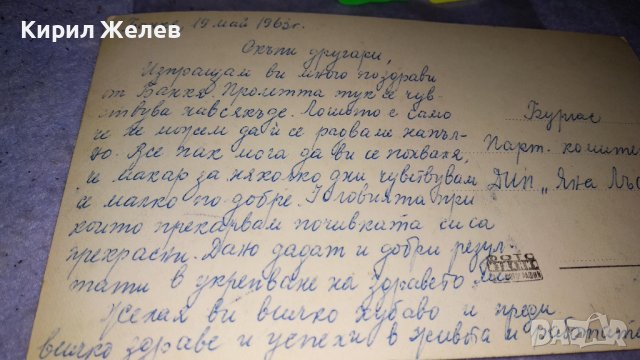 Кирил Желев
Банкя, 19 май 1963г.
Скъпи другари,
Изпращам ви много поздрави
от Банкя. Пролетта тук се чув-
ствува навсякъде. Лошото е само
че не можем да и се радваме напъл-
но. Все пак мога да ви се похваля,
че макар за няколко дни чувствувам
се малко по-добре. Условията при
които прекарвам почивката си са
прекрасни. Дано дадат и добри резул-
тати в укрепване на здравето ми.
Желая ви всичко хубаво и преди
всичко здраве и успехи в живота и работата
Бургас
Парт. комите
ДИП „Яна Лъс
ФОТО